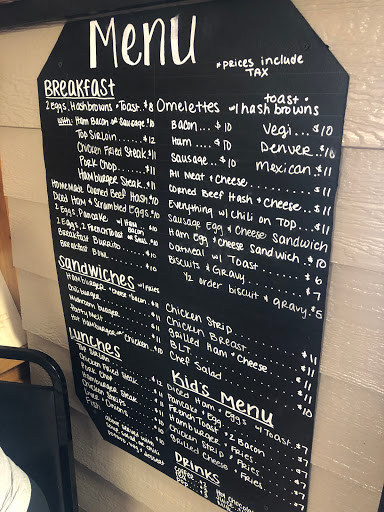 Menu
*prices include TAX
BREAKFAST
2 Eggs, Hashbrowns + Toast. $8
with: Ham Bacon or Sausage $10
Top Sirloin... $12
Chicken Fried Steak. $11
Pork Chop...
Hamburger Steak.. $11
Home Made Corned Beef Hash
Diced Ham + Scrambled Eggs.
2 Eggs, Pancake w/ Ham
Bacon
2 Eggs, 2 French Toast
Breakfast Burrito... $10
Breakfast Bowl... $10
Omelettes w/ hash browns
toast +
Bacon... $10
Ham.... $10
Sausage... $10
All Meat + Cheese..... $11
Corned Beef Hash + Cheese... $11
Everything w/ Chili on Top... $11
Vegi... $10
Denver.. $10
Mexican $11
Sausage Egg + Cheese Sandwich
Ham Egg + Cheese Sandwich. $10
Oatmeal w/ Toast.... $6
Biscuits + Gravy.... $7
1/2 order biscuit + gravy. $5
Sandwiches w/ Fries
Hamburger + Cheese + Bacon
Chili burger
Mushroom burger
Patty Melt
Hot Hamburger or Chicken. $10
Chicken Strip.... $11
Chicken Breast.... $11
Grilled Ham + Cheese
BLT....
Chef Salad.... $10
Lunches
Top Sirloin
Chicken Fried Steak. $12
Pork Chop
Hamburger Steak
Chicken Strips
Liver + Onions
Fish
Kid's Menu
Diced Ham + Eggs + Toast. $7
Pancake + Egg
French Toast + 2 Bacon
Hamburger + Fries
Chicken Strip + Fries
Grilled Cheese + Fries.. $7
Drinks
Coffee
Hot Chocolate